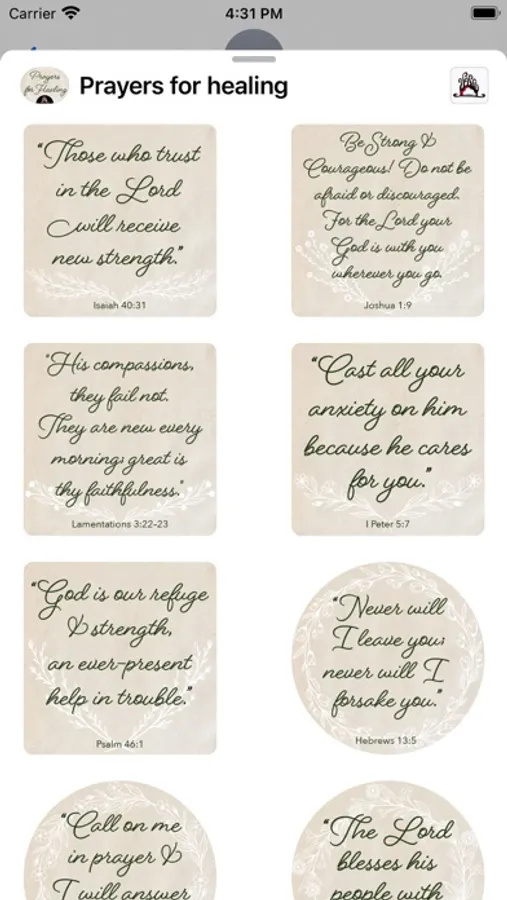 Carrier
4:31 PM
Prayers
for Healing
Prayers for healing
“Those who trust
in the Lord
will receive
new strength.”
Isaiah 40:31
Be Strong &
Courageous! Do not be
afraid or discouraged.
For the Lord your
God is with you
wherever you go.
Joshua 1:9
“His compassions,
they fail not.
They are new every
morning; great is
thy faithfulness.”
Lamentations 3:22-23
“Cast all your
anxiety on him
because he cares
for you.”
I Peter 5:7
“God is our refuge
& strength,
an ever-present
help in trouble.”
Psalm 46:1
“Never will
I leave you;
never will I
forsake you.”
Hebrews 13:5
“Call on me
in prayer &
I will answer
“The Lord
blesses his
people with